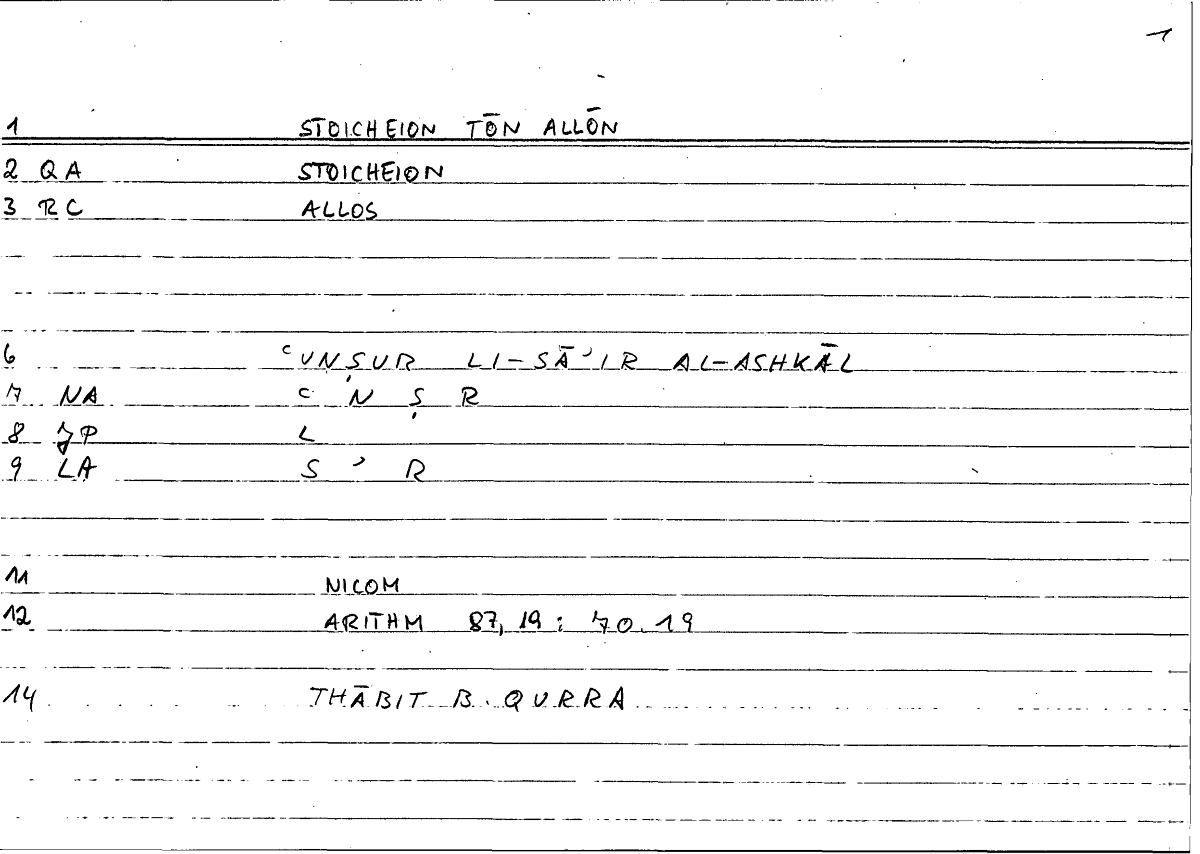 1
1 STOICHEION TŌN ALLŌN
2 QA STOICHEION
3 RC ALLOS
6 ʿUNṢUR LI-SĀʾIR AL-ASHKĀL
7 NA ʿ N Ṣ R
8 JP L
9 LA S ʾ R
11 NICOM
12 ARITHM 87,19 : 70.19
14 THĀBIT B. QURRA